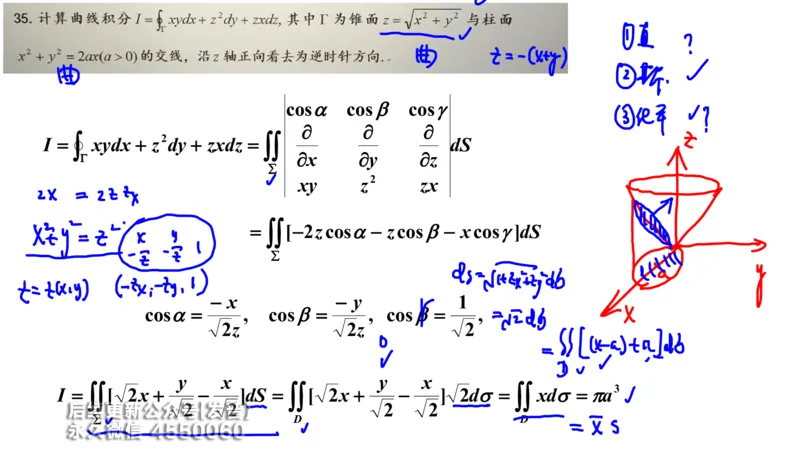 35. 计算曲线积分 I = ∮_Γ xydx + z²dy + zxdz, 其中 Γ 为锥面 z = √(x² + y²) 与柱面
x² + y² = 2ax(a > 0) 的交线，沿 z 轴正向看去为逆时针方向.
曲
曲
z = -(x+y)
① 直 ?
②
③ ?
I = ∮_Γ xydx + z²dy + zxdz = ∬_Σ | cosα cosβ cosγ ; ∂/∂x ∂/∂y ∂/∂z ; xy z² zx | dS
2x = 2z zx
x²+y² = z²
x/-z y/-z 1
z = z(x,y) (-zx, -zy, 1)
= ∬_Σ [-2z cosα - z cosβ - x cosγ]dS
dS = √(1+zx²+zy²) dσ
= √2 dσ
cosα = -x/√2z, cosβ = -y/√2z, cosβ = 1/√2,
= ∬_D [(x-a)+a]dσ
0
I = ∬_Σ [√2x + y/√2 - x/√2]dS = ∬_D [√2x + y/√2 - x/√2]√2dσ = ∬_D xdσ = πa³
= x̄ S
后续更新公众号[发喾]
永久微信 4550060
z
y
x
a